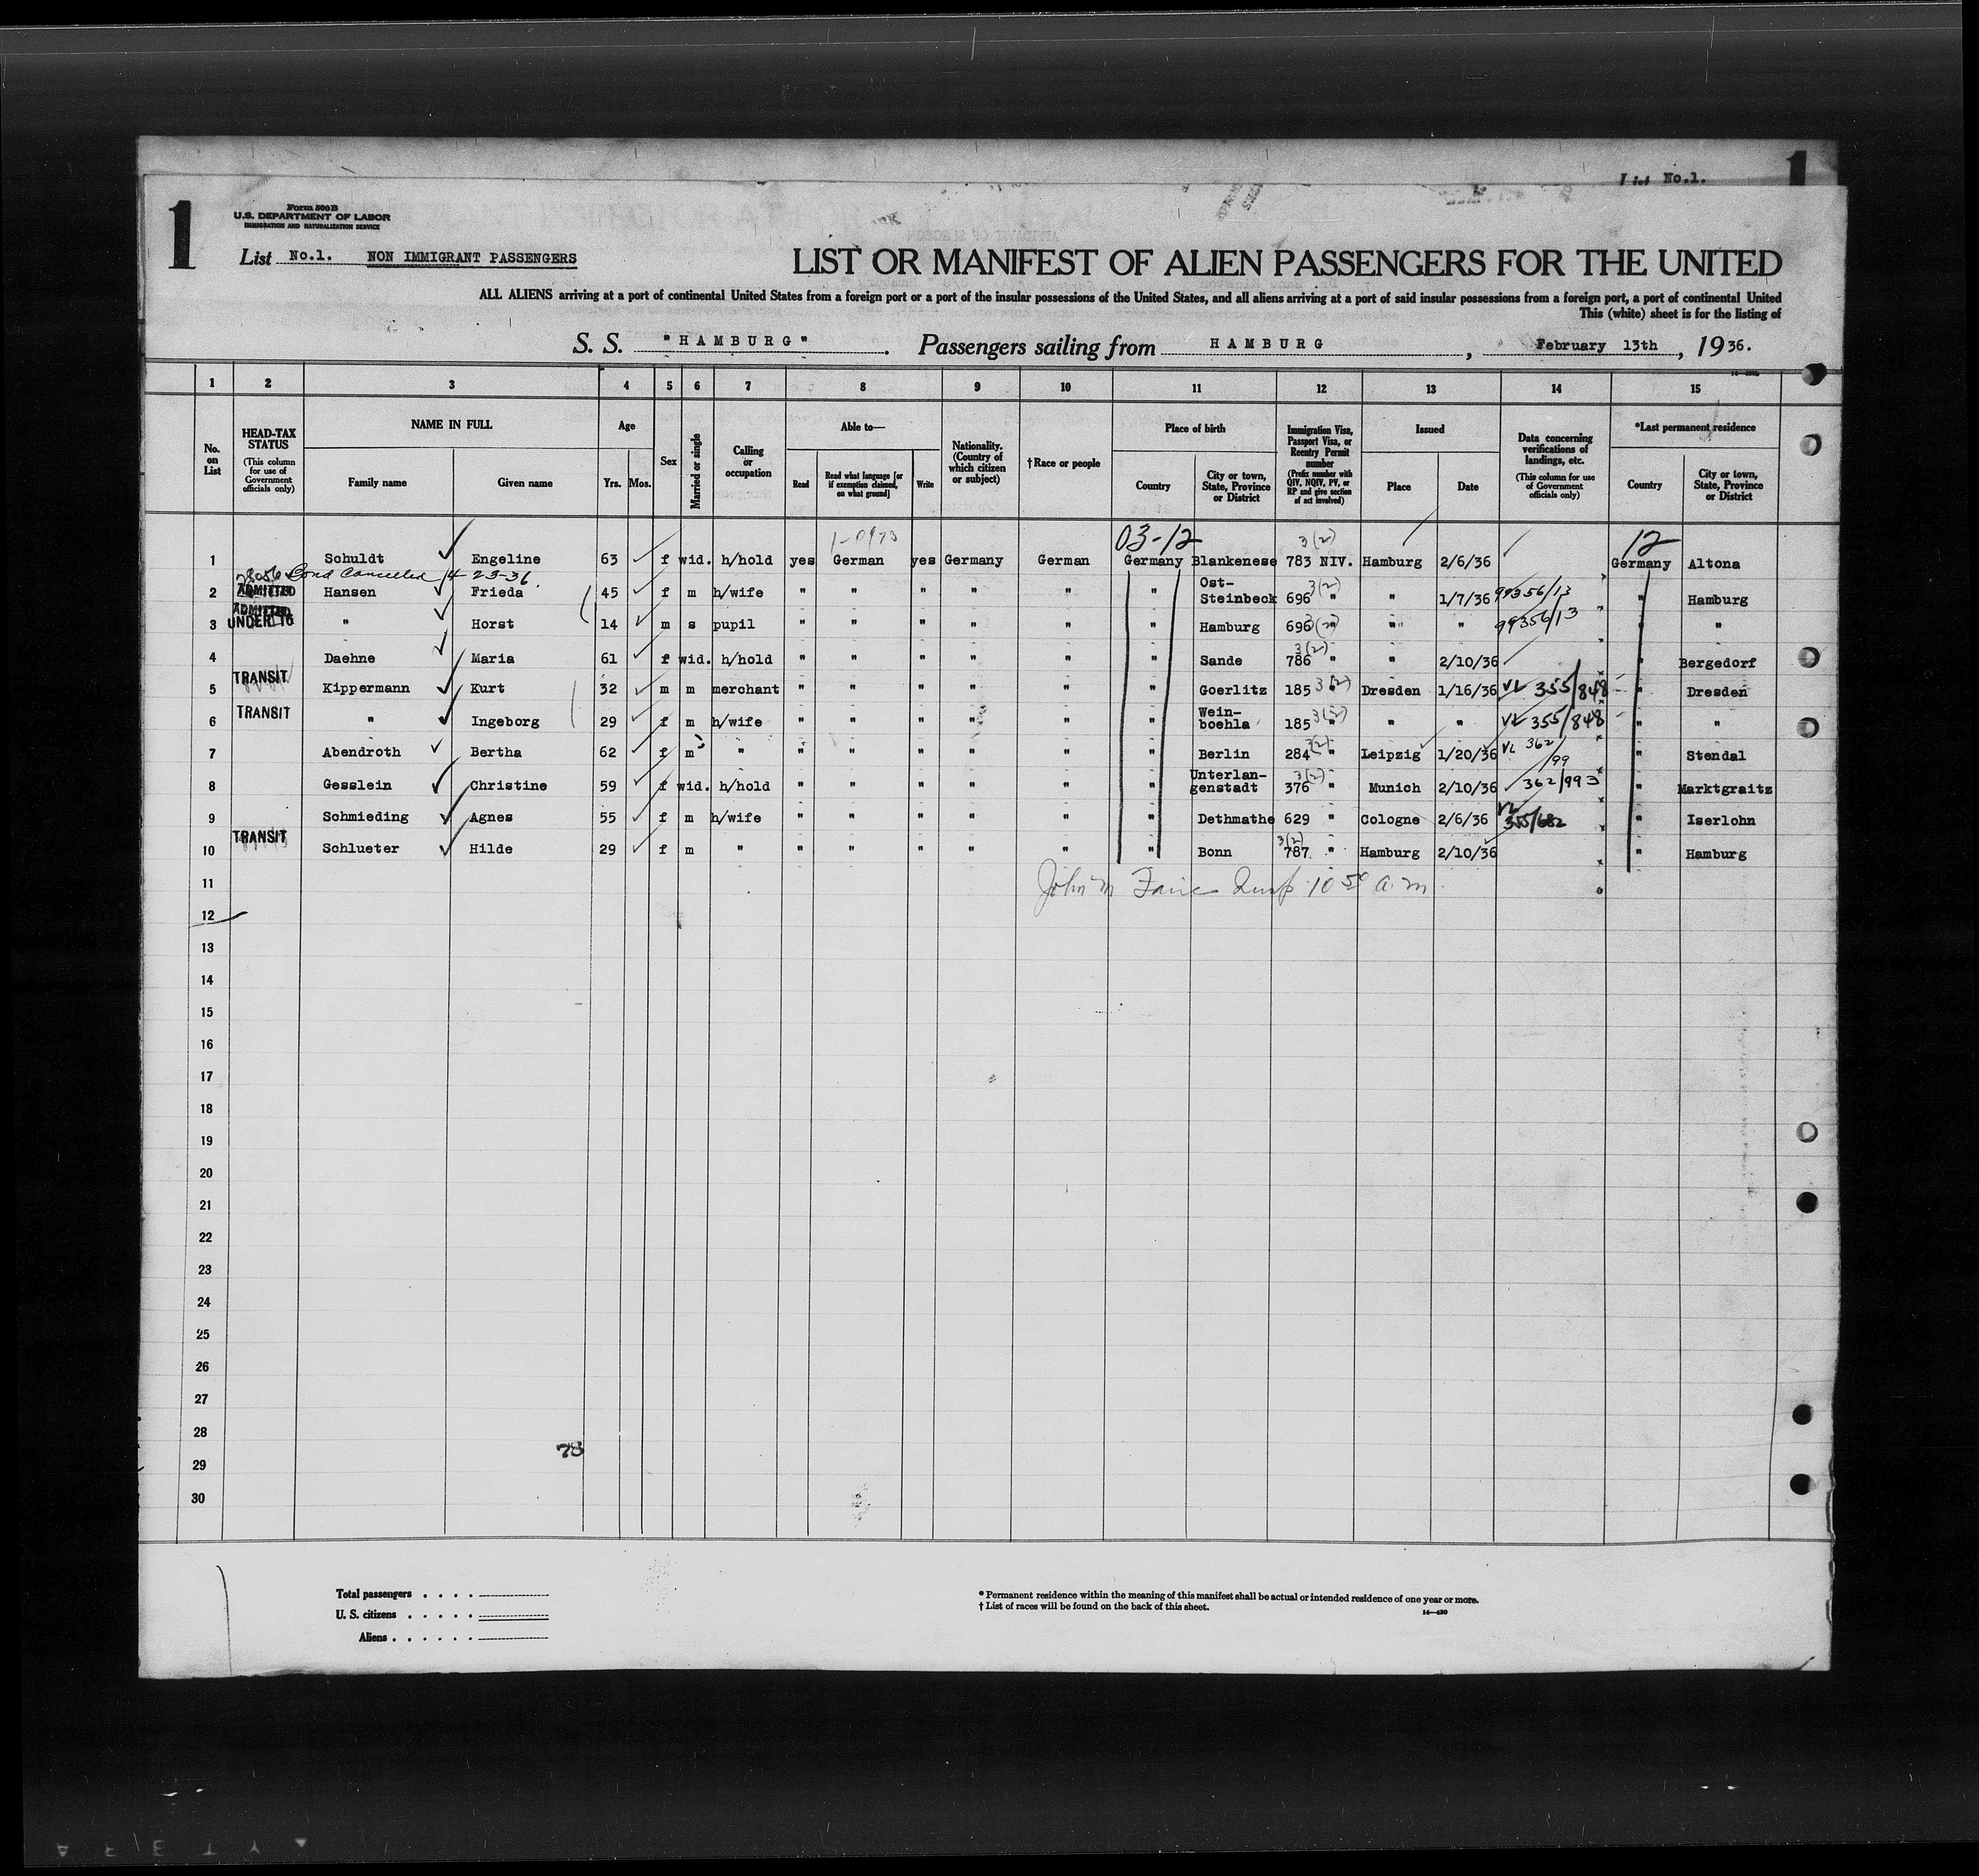 List No.1.
1
1
Form 500 B
U.S. DEPARTMENT OF LABOR
IMMIGRATION AND NATURALIZATION SERVICE
List No.1. NON IMMIGRANT PASSENGERS
LIST OR MANIFEST OF ALIEN PASSENGERS FOR THE UNITED
ALL ALIENS arriving at a port of continental United States from a foreign port or a port of the insular possessions of the United States, and all aliens arriving at a port of said insular possessions from a foreign port, a port of continental United
This (white) sheet is for the listing of
S. S. "HAMBURG". Passengers sailing from HAMBURG, February 13th, 1936.
1 2 3 4 5 6 7 8 9 10 11 12 13 14 15
No. on List
HEAD-TAX STATUS (This column for use of Government officials only)
NAME IN FULL Family name Given name
Age Yrs. Mos.
Sex
Married or single
Calling or occupation
Able to— Read Read what language [or if exemption claimed, on what ground] Write
Nationality. (Country of which citizen or subject)
†Race or people
Place of birth Country City or town, State, Province or District
Immigration Visa, Passport Visa, or Reentry Permit number (Prefix number with QIV, NQIV, PV, or RP and give section of act involved)
Issued Place Date
Data concerning verifications of landings, etc. (This column for use of Government officials only)
*Last permanent residence Country City or town, State, Province or District
1-0973 03-12 3(2) 12
1 Schuldt Engeline 63 f wid. h/hold yes German yes Germany German Germany Blankenese 783 NIV. Hamburg 2/6/36 Germany Altona
28056 Bond Cancelled 4-23-36.
2 ADMITTED Hansen Frieda 45 f m h/wife " " " " " " Ost-Steinbeck 696 3(2) " " 1/7/36 99356/13 " Hamburg
3 ADMITTED UNDER 16 " Horst 14 m s pupil " " " " " " Hamburg 696 3(2) " " " 99356/13 " "
4 Daehne Maria 61 f wid. h/hold " " " " " " Sande 786 3(2) " " 2/10/36 " Bergedorf
5 TRANSIT Kippermann Kurt 32 m m merchant " " " " " " Goerlitz 185 3(2) " Dresden 1/16/36 VL 355/848 " Dresden
6 TRANSIT " Ingeborg 29 f m h/wife " " " " " " Wein-boehla 185 3(2) " " " VL 355/848 " "
7 Abendroth Bertha 62 f m " " " " " " " Berlin 284 3(2) " Leipzig 1/20/36 VL 362/99 " Stendal
8 Gesslein Christine 59 f wid. h/hold " " " " " " Unterlan-genstadt 376 3(2) " Munich 2/10/36 362/993 " Marktgraitz
9 Schmieding Agnes 55 f m h/wife " " " " " " Dethmathe 629 " Cologne 2/6/36 VL 355/682 " Iserlohn
10 TRANSIT Schlueter Hilde 29 f m " " " " " " " Bonn 787 3(2) " Hamburg 2/10/36 " Hamburg
11 John M 10 50 a.m.
12
13
14
15
16
17
18
19
20
21
22
23
24
25
26
27
28
78
29
30
Total passengers
U. S. citizens
Aliens
* Permanent residence within the meaning of this manifest shall be actual or intended residence of one year or more.
† List of races will be found on the back of this sheet.
14—430